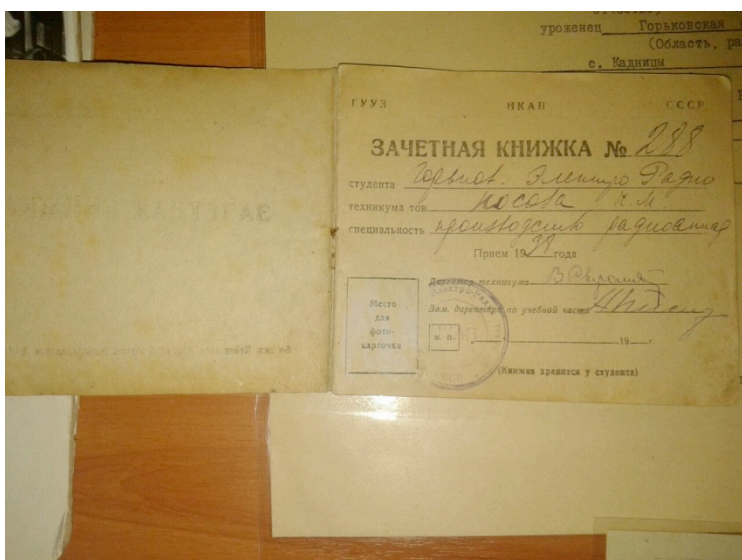 уроженец Горьковская
(Область, ра
с. Кадницы
ГУУЗ НКАП СССР
ЗАЧЕТНАЯ КНИЖКА № 288
студента Горьков. Электро Радио
техникума тов. Носова
специальность производство радиоаппар
Прием 19 года
Директор техникума
Зам. директора по учебной части
Место
для
фото-
карточки
м. п.
19 г.
(Книжка хранится у студента)